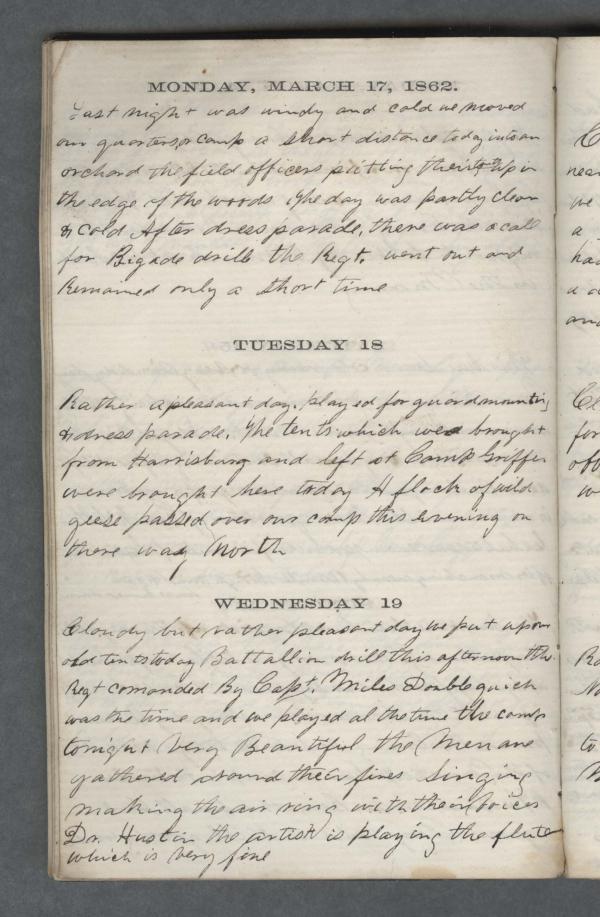 MONDAY, MARCH 17, 1862.
Last night was windy and cold we moved
our quarters or camp a short distance today into an
orchard the field officers putting theirs up in
the edge of the woods The day was partly clear
& cold After dress parade, there was a call
for Bigade drill the Regt. went out and
Remained only a short time
TUESDAY 18
Rather a pleasant day. played for guard mounting
& dress parade. The tents which were brought
from Harrisburg and left at Camp Griffin
were brought here today A flock of wild
geese passed over our camp this evening on
there way North
WEDNESDAY 19
Cloudy but rather pleasant day we put up our
old tents today Battallion drill this afternoon the
Regt comanded By Capt. Miles Double quick
was the time and we played al the time the camp
tonight very Beautiful the Men are
gathered around their fires Singing
making the air ring with their voices
Dr. Hustin the artist is playing the flute
which is very fine
C
near
we
a
ha
a
and
for
off
w
Ra
No
to